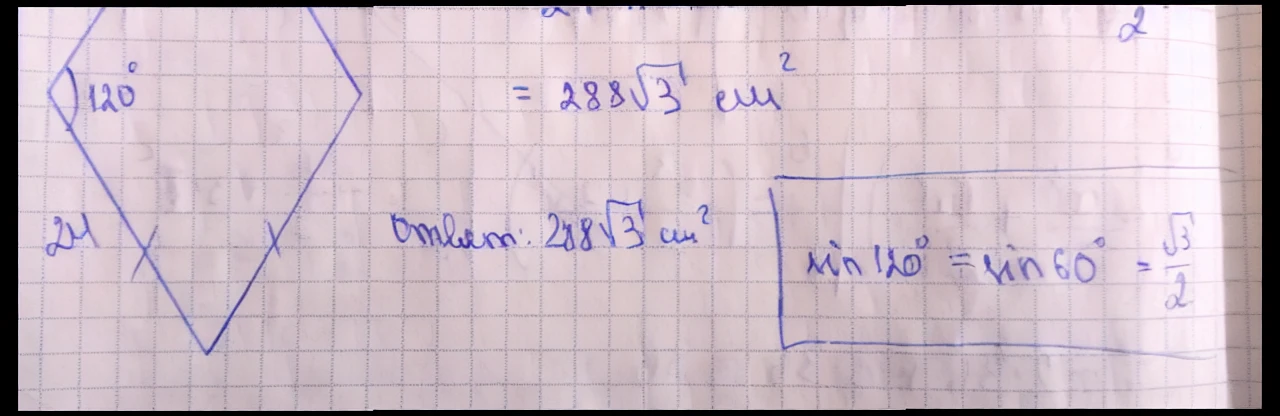 2
120°
= 288√3 см²
24
Ответ: 288√3 см²
sin 120° = sin 60° = √3/2